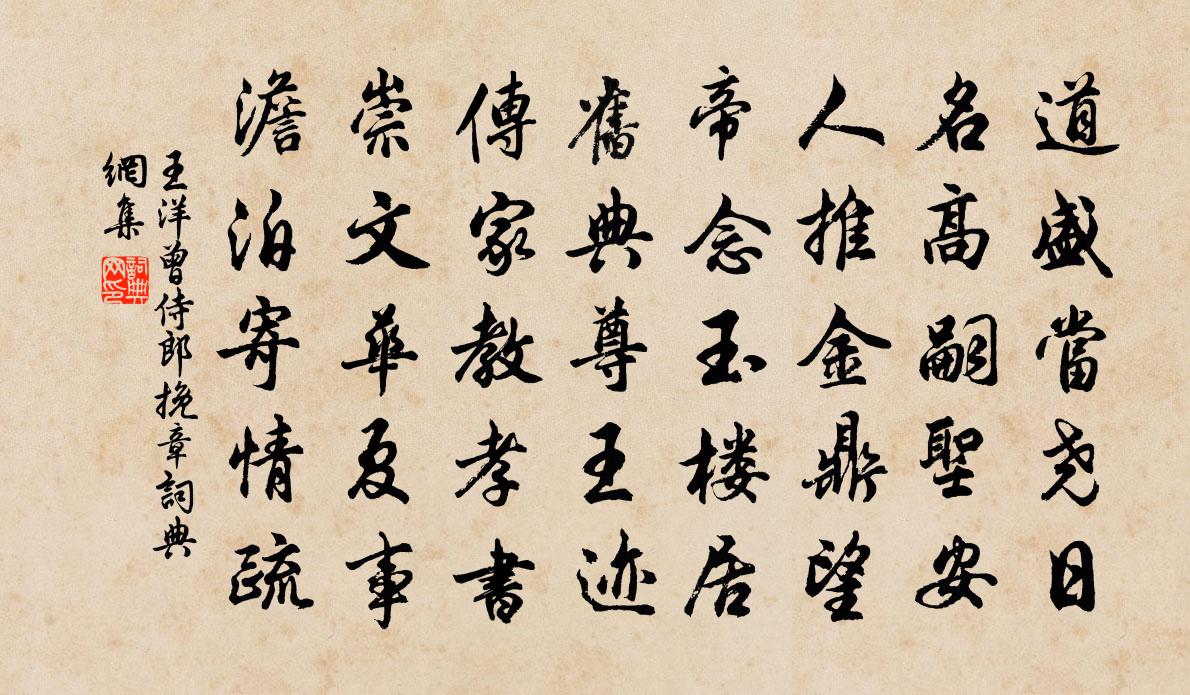 道盛當尧日
名高嗣聖安
人推金鼎望
帝念玉楼居
舊典尊王迹
傳家教孝书
崇文華夏事
澹泊寄情疏
王洋曾侍郎挽章詞典
網集
詞典
网印